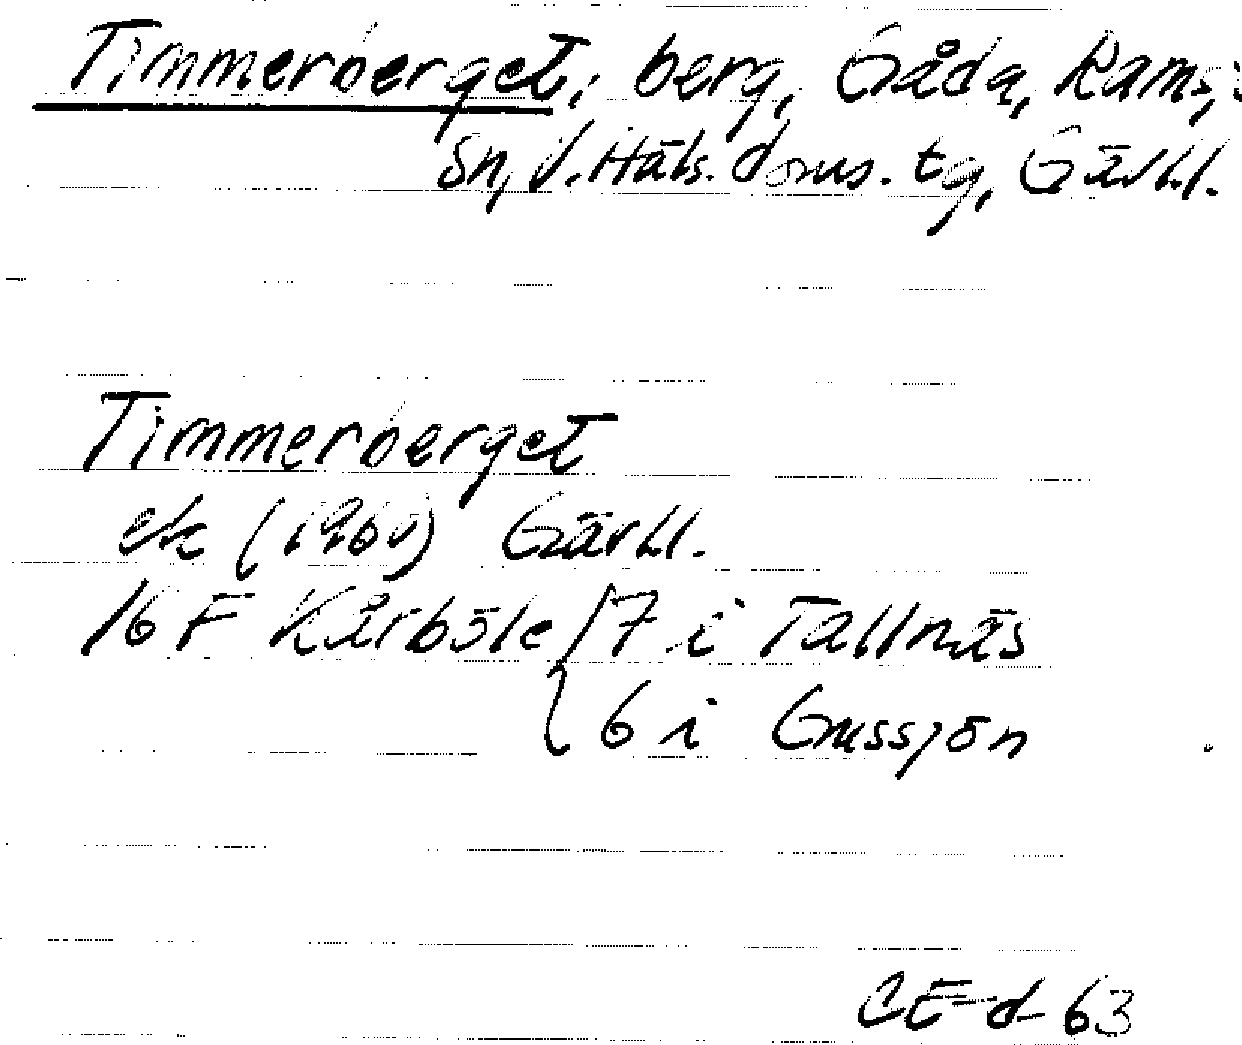 Timmerberget, berg, Gåda, Ramsj:
sn, V. Häls. doms. tg, Gävl.l.
Timmerberget
ek (1960) Gävl.l.
16 F Kårböle { 7 i Tallnäs
{ 6 i Grussjön
CE-d-63